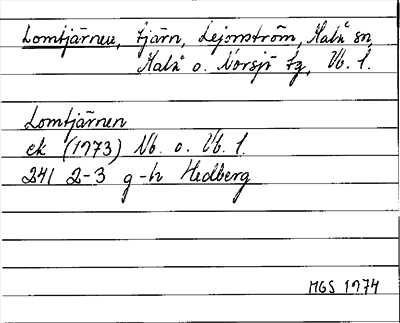 Lomtjärnen, tjärn, Lejonström, Malå sn,
Malå o. Norsjö tg, Vb. l.
Lomtjärnen
ek (1973) Nb. o. Vb. l.
241 2-3 g-h Hedberg
MGS 1974